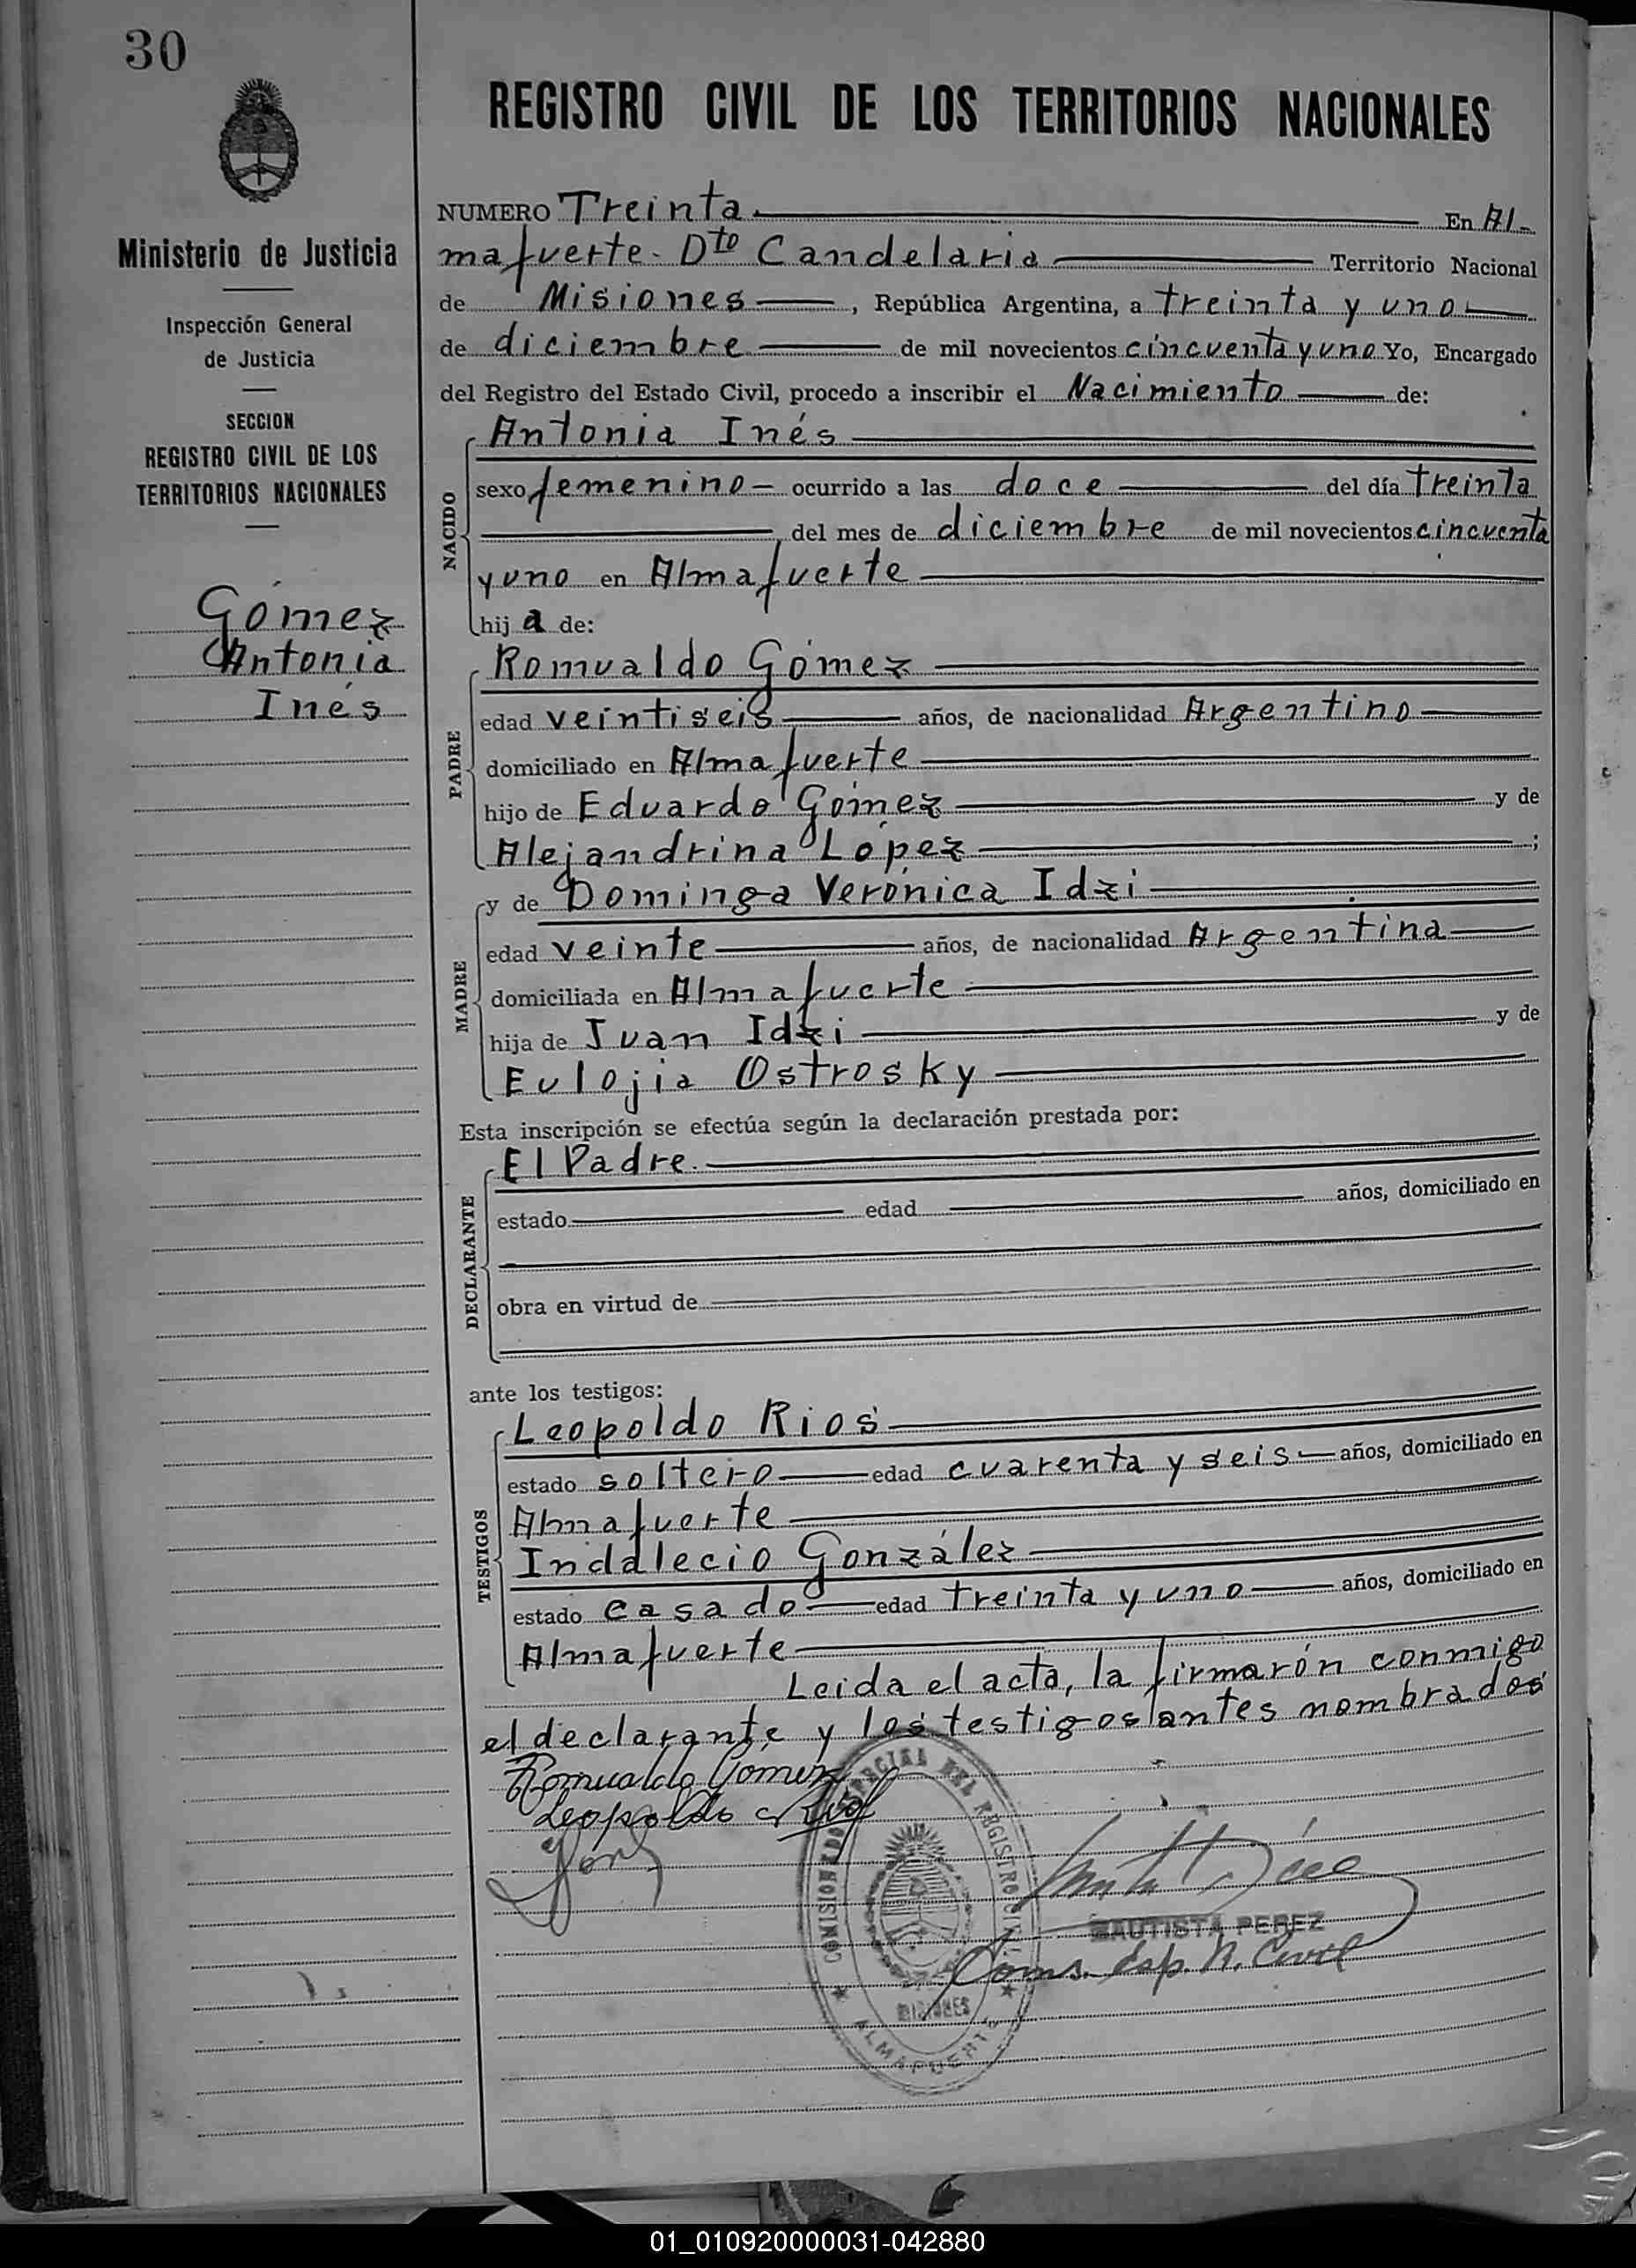 30
Ministerio de Justicia
Inspección General
de Justicia
SECCION
REGISTRO CIVIL DE LOS
TERRITORIOS NACIONALES
Gómez
Antonia
Inés
REGISTRO CIVIL DE LOS TERRITORIOS NACIONALES
NUMERO Treinta En Al-
mafuerte. Dto Candelaria Territorio Nacional
de Misiones, República Argentina, a treinta y uno
de diciembre de mil novecientos cincuenta y uno Yo, Encargado
del Registro del Estado Civil, procedo a inscribir el Nacimiento de:
NACIDO
Antonia Inés
sexo femenino ocurrido a las doce del día treinta
del mes de diciembre de mil novecientos cincuenta
y uno en Almafuerte
hij a de:
PADRE
Romualdo Gómez
edad veintiseis años, de nacionalidad Argentino
domiciliado en Almafuerte
hijo de Eduardo Gómez y de
Alejandrina López;
MADRE
y de Dominga Verónica Idzi
edad veinte años, de nacionalidad Argentina
domiciliada en Almafuerte
hija de Juan Idzi y de
Eulojia Ostrosky
Esta inscripción se efectúa según la declaración prestada por:
DECLARANTE
El Padre.
estado edad años, domiciliado en
obra en virtud de
ante los testigos:
TESTIGOS
Leopoldo Rios
estado soltero edad cuarenta y seis años, domiciliado en
Almafuerte
Indalecio González
estado casado edad treinta y uno años, domiciliado en
Almafuerte
Leida el acta, la firmarón conmigo
el declarante y los testigos antes nombrados
Romualdo Gomez
Leopoldo Rios
COMISIONADO ESPECIAL DEL REGISTRO CIVIL
MISIONES
ALMAFUERTE
BAUTISTA PEREZ
Coms. Esp. R. Civil
01_010920000031-042880